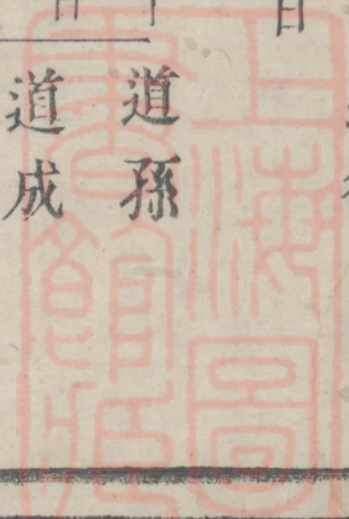 道孫
道成
上海圖
書館藏